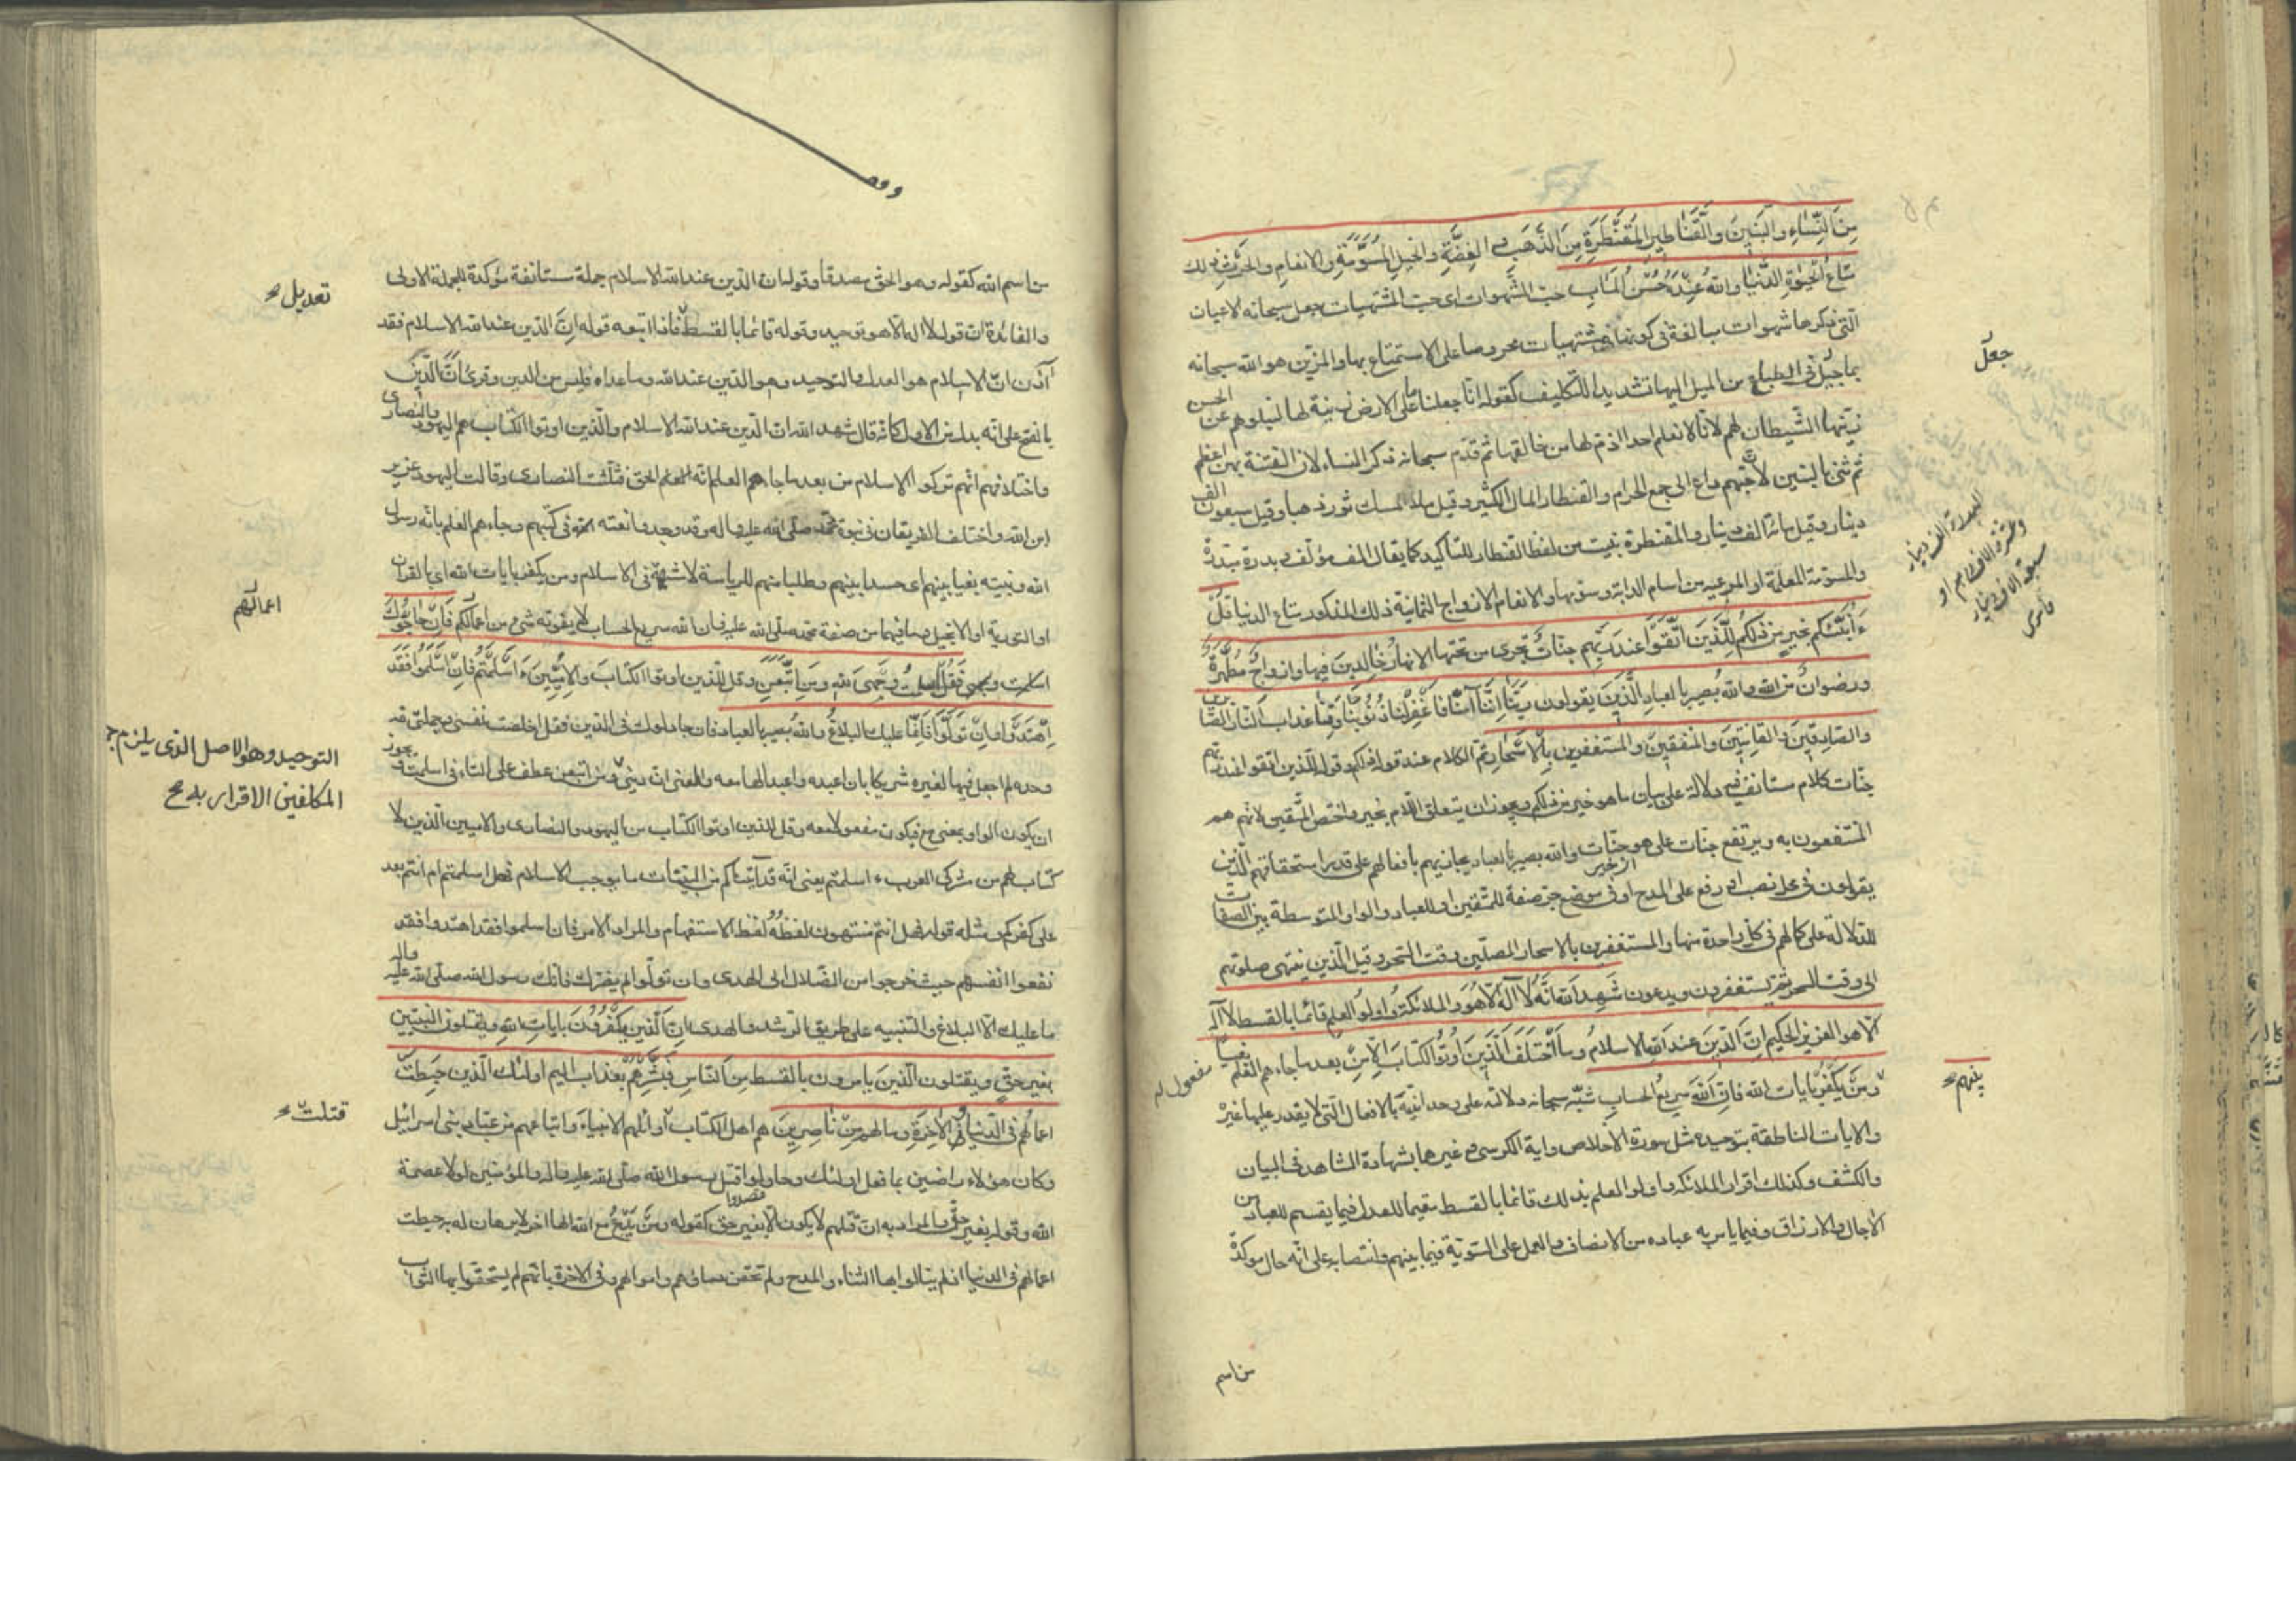 مِنَ النِّسَاءِ وَالْبَنِينَ وَالْقَنَاطِيرِ الْمُقَنْطَرَةِ مِنَ الذَّهَبِ وَ الْفِضَّةِ وَالْخَيْلِ الْمُسَوَّمَةِ وَالْاَنْعَامِ وَالْحَرْثِ ذلك
مَتَاعُ الْحَيوةِ الدُّنْيَا وَاللهُ عِنْدَهُ حُسْنُ الْمَابِ حبّ الشّهوات اى حبّ المشتهيات جعل سبحانه الاعيان
الّتى ذكرها شهوات مبالغة فى كونها مشتهيات محروصا على الاستمتاع بها والمزيّن هو الله سبحانه
بما جُبِل فى الطباع من الميل اليها تشديدا للتكليف كقوله انّا جعلنا ما على الارض زينة لها لنبلوهم عن الحسن
زيّنها الشّيطان لهم لانّا لا نعلم احدا اذمّ لها من خالقها ثم قدّم سبحانه ذكر النساء لان الفتنة بهنّ اعظم
ثم ثنى بالبنين لانّ حبّهم داع الى جمع الحرام والقنطار المال الكثير وقيل ملاء مسك ثور ذهبا وقيل سبعون الف
دينار وقيل مائة الف دينار والمقنطرة بنيت من لفظ القنطار للتأكيد كما يقال الف مؤلف و بدرة مبدرة
والمسوّمة المعلمة او المرعيه من اسام الدابّة وسوّمها والانعام الازواج الثمانية ذلك المذكور متاع الدنيا قُلْ
ءَاُنَبِّئُكُمْ بخير من ذلكم لِلَّذِينَ اتَّقَوْا عند ربّهم جنّات تجرى من تحتها الانهار خالدين فيها وازواج مُطَهَّرَةٌ
ورضوان من الله والله بصير بالعباد الَّذِينَ يقولون ربّنا اِنَّنَا آمَنَّا فَاغْفِرْ لَنَا ذُنُوبَنَا وَقِنَا عذاب النّار الصّابرين
والصّادقين والقانتين والمنفقين والمستغفرين بِالْاَسْحَارِ تمّ الكلام عند قوله ذلكم وقوله للّذين اتقوا عند ربّهم
جنّات كلام مستانف فيه دلالة على بيان ما هو خير من ذلكم ويجوز ان يتعلق اللام بخير واختص المتّقين لانّهم هم
المنتفعون به ويرتفع جنّات على هو جنّات والله بصير بالعباد يجازيهم بافعالهم على قدر استحقاقهم الّذين
يقولون فى محل نصب او رفع على المدح او فى موضع جرّ صفة للمتّقين او للعباد والواو المتوسطة بين الصفات
للدّلالة على كمالهم فى كل واحدة منها والمستغفرين بالاسحار المصلّين وقت السّحر وقيل الّذين ينتهى صلوتهم
الى وقت السّحر ثمّ يستغفرون ويدعون شَهِدَ اللهُ اَنَّهُ لَا اِلهَ اِلَّا هُوَ والملائكة واولوا العلم قائما بالقسط لا اله
الّا هو العزيز الحكيم اِنَّ الدِّينَ عند الله الاسلامُ وما اخْتَلَفَ الَّذِينَ اُوتُوا الكتابَ اِلّا مِنْ بعد ما جاءهم العلم بغيا
وَمَنْ يَكْفُرْ بايات الله فَاِنَّ اللهَ سريع الحساب شبّه سبحانه دلالته على وحدانيّته بالافعال الّتى لا يقدر عليها غيره
والايات الناطقة بتوحيده مثل سورة الاخلاص واية الكرسى و غيرها بشهادة الشاهد فى البيان
والكشف وكذلك اقرار الملائكة واولو العلم بذلك قائما بالقسط مقيما للعدل فيما يقسم للعباد من
الاجال والارزاق وفيما يامر به عباده من الانصاف والعمل على السّويّة فيما بينهم وانتصابه على انّه حال مؤكدة
جعل
يفهم
مفعول له
من اسم
ومن اسم الله كقوله وهو الحق مصدقا وقوله ان الدين عند الله الاسلام جملة مستانفة مؤكدة للجملة الاولى
والفائدة ان قوله لا اله الّا هو توحيد وقوله قائما بالقسط فاذا اتبعه قوله انّ الدّين عند الله الاسلام فقد
آذن انّ الاسلام هو العدل والتوحيد وهو الدّين عند الله وما عداه فليس من الدين وقرئ انّ الدّين
بالفتح على انّه بدل من الاول كانّه قال شهد الله ان الدين عند الله الاسلام والّذين اوتوا الكتاب هم اليهود والنصارى
واختلافهم انّهم تركوا الاسلام من بعد ما جاءهم العلم انّه الحق فثلّثت النصارى وقالت اليهود عزير
ابن الله واختلف الفريقان فى نبوة محمّد صلّى الله عليه واله وقد وجدوا نعته فى كتبهم وجاءهم العلم بانّه رسول
الله ونبيّه بغيا بينهم اى حسدا بينهم وطلبا منهم للرياسة لا شبهة فى الاسلام ومن يكفر بايات الله اى بالقران
او التورية او الانجيل وما فيهما من صفة محمّد صلّى الله عليه فان الله سريع الحساب لا يفوته شئ من اعمالكم فَاِنْ حَاجُّوكَ
فَقُلْ اسلمت وَجْهِىَ لله ومَنِ اتَّبَعَنِ وقل للّذين اوتوا الكتابَ والْاُمِّيِّينَ ءَاَسْلَمْتُمْ فَاِنْ اَسْلَمُوا فَقَدِ
اهْتَدَوْا وَاِنْ تَوَلَّوْا فَاِنَّمَا عليك البلاغُ والله بصير بالعباد فان جادلوك فى الدّين فقل اخلصت نفسى وجملتى لله
وحده لم اجعل فيها لغيره شريكا بان اعبده واعبد الها معه والمعنى انّ دينى ومن اتبعن عطف على التاء فى اسلمت ويجوز
ان يكون الواو بمعنى مع فيكون مفعولا معه وقل للذين اوتوا الكتاب من اليهود والنصارى والاميين الّذين لا
كتاب لهم من مشركى العرب ءاسلمتم يعنى انّه قد آتيكم من البيّنات ما يوجب الاسلام فهل اسلمتم ام انتم بعد
على كفركم مثله قوله فهل انتم منتهون لفظه لفظ الاستفهام والمراد الامر فان اسلموا فقد اهتدوا فقد
نفعوا انفسهم حيث خرجوا من الضّلال الى الهدى وان تولّوا لم يضرّك فانّك رسول الله صلّى الله عليه واله
ما عليك الّا البلاغ والتنبيه على طريق الرّشد والهدى اِنَّ الَّذين يَكْفُرُونَ بايات الله ويقتلون النّبيّين
بغير حقّ ويقتلون الّذين يامرون بالقسط من النّاس فَبَشِّرْهُمْ بعذاب اليم اولئك الّذين حبطت
اعمالهم فى الدّنيا وَالْاخِرَةِ وما لهم مِنْ نَاصِرِينَ هم اهل الكتاب قتل اوّلهم الانبياء واتباعهم من عبّاد بنى اسرائيل
وكان هؤلاء راضين بما فعل اولئك وحاولوا قتل رسول الله صلّى الله عليه واله والمؤمنين لولا عصمة
الله وقوله بغير حقّ والمراد به انّ قتلهم لا يكون الّا بغير حق كقوله ومن يدع مع الله الها اخر لا برهان له به حبطت
اعمالهم فى الدنيا اذ لم ينالوا بها الثناء والمدح ولم تحقن دماؤهم واموالهم وفى الاخرة بانّهم لم يستحقّوا بها الثّواب
تعديل
اعمالهم
التوحيد وهو الاصل الذى يلزم ج
المكلفين الاقرار به
قتلت